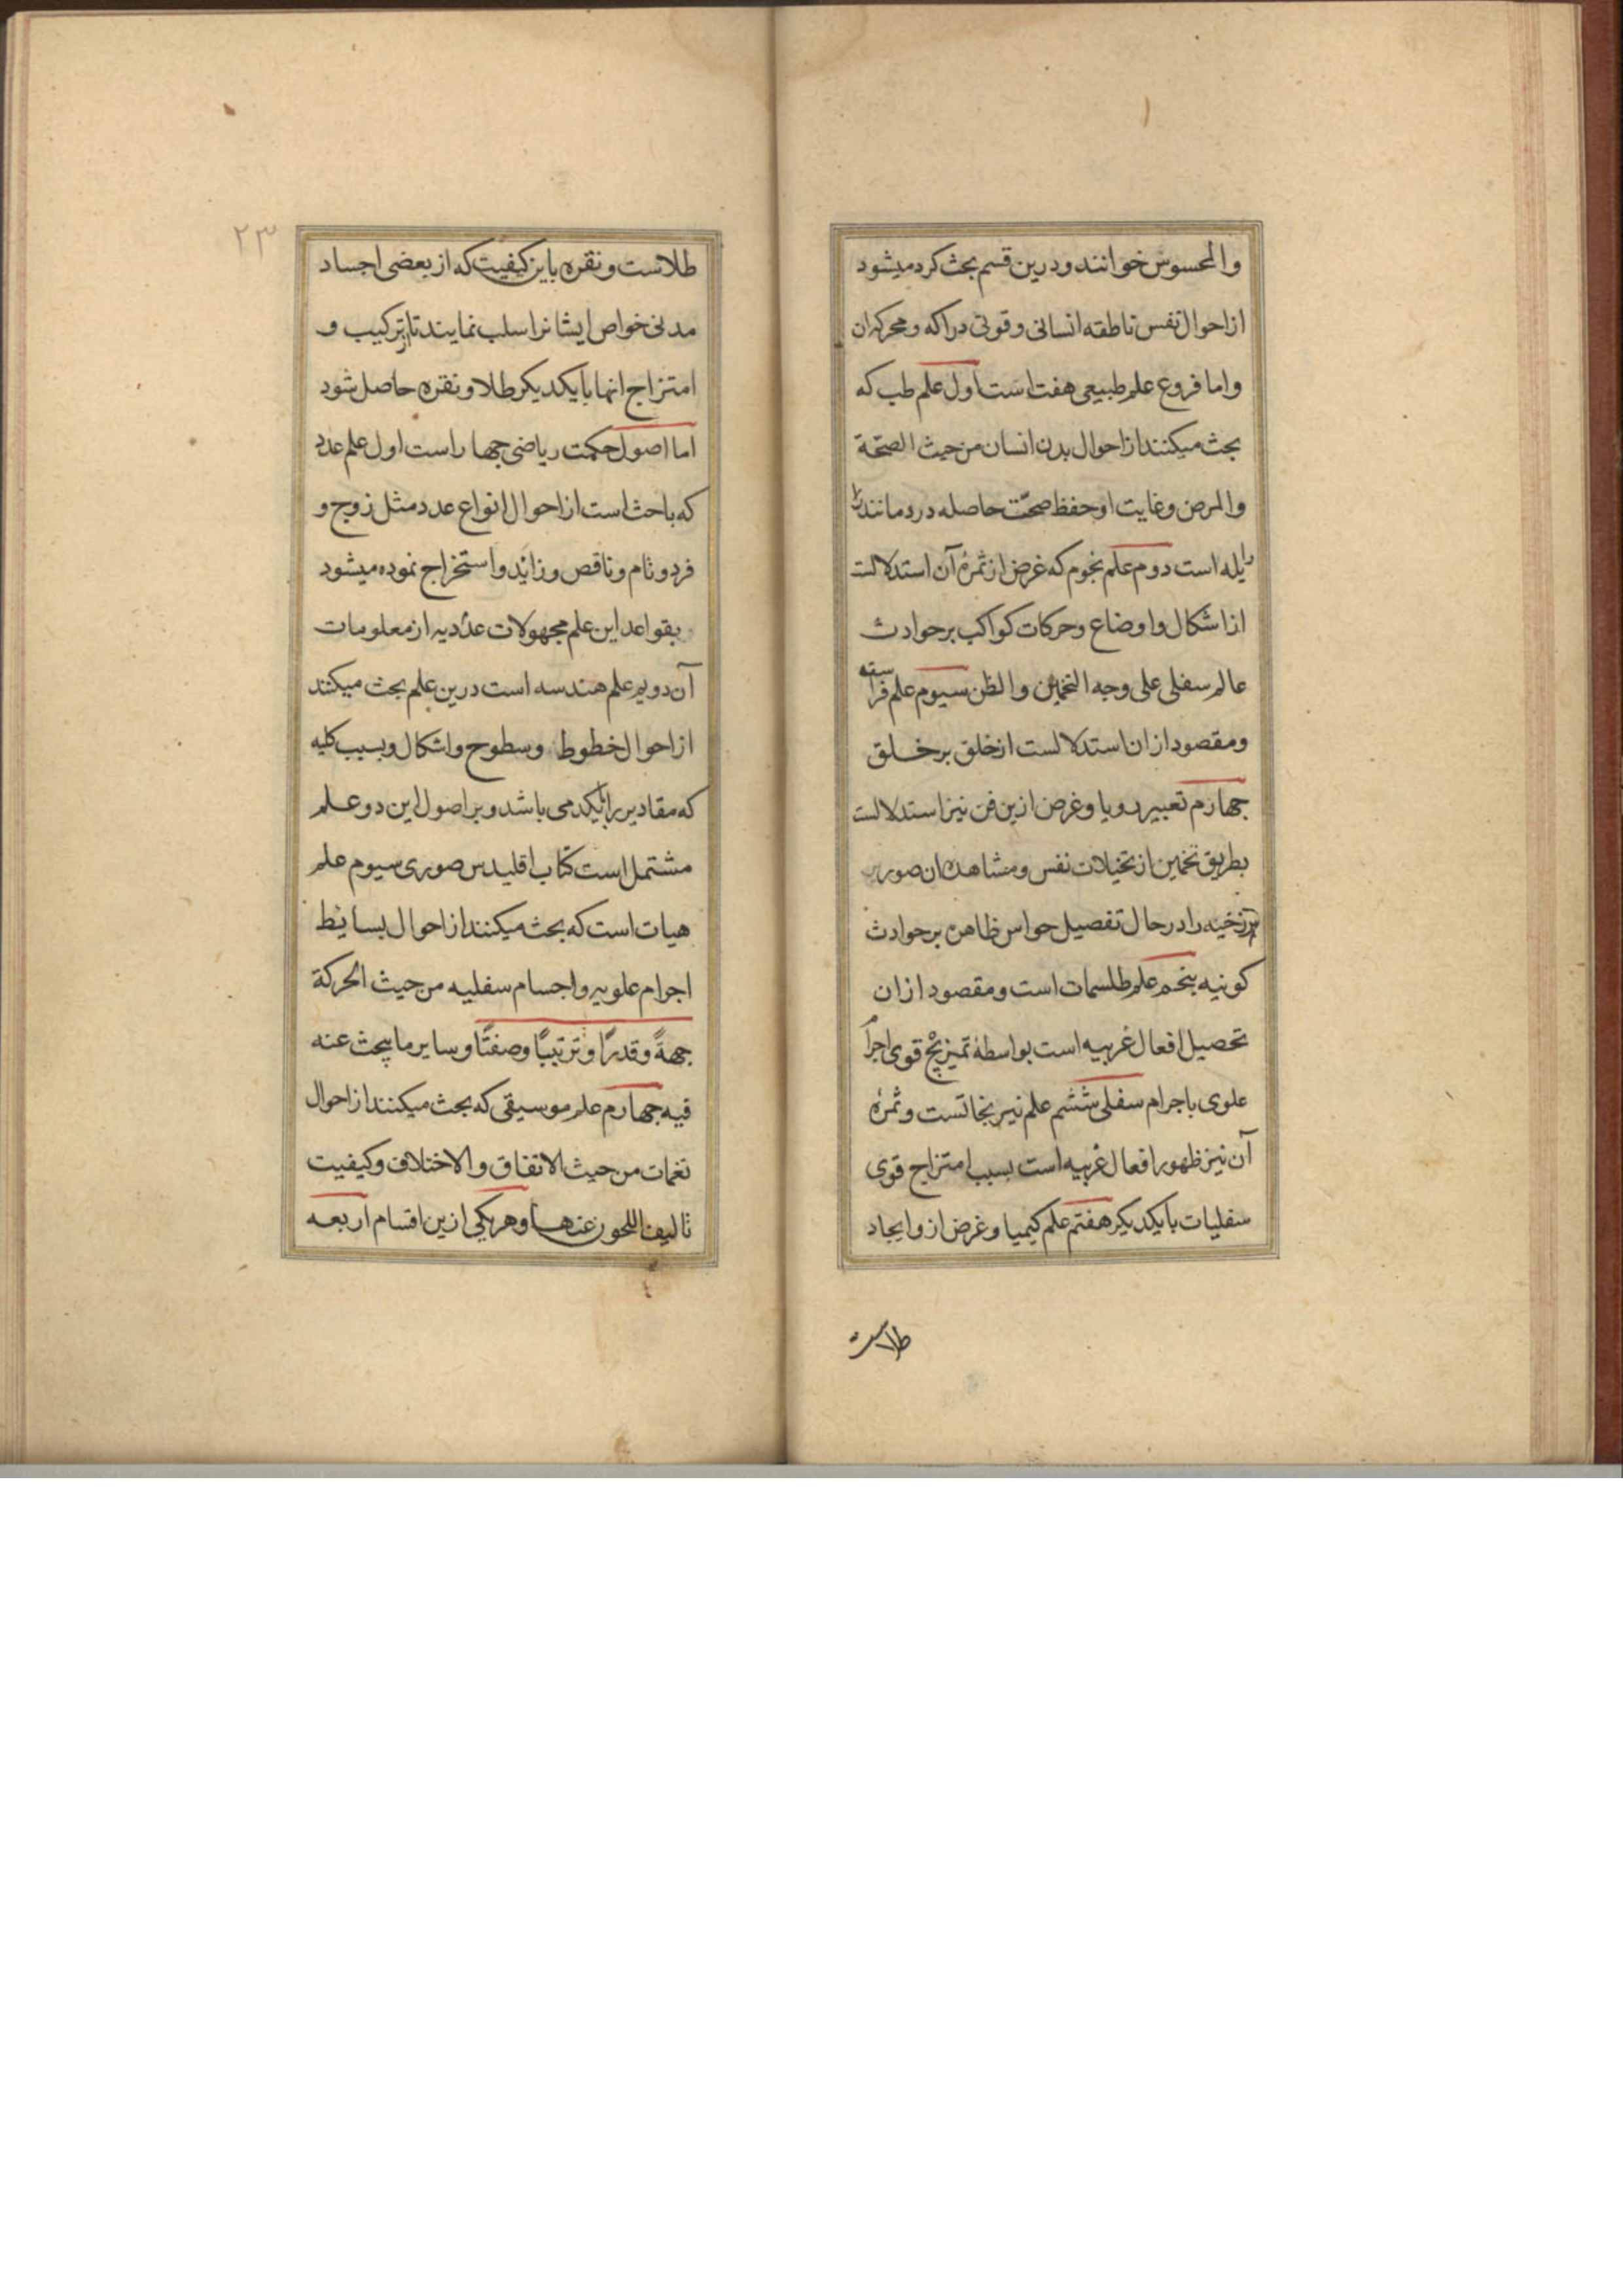 والمحسوس خوانند و درین قسم بحث کرد میشود
از احوال نفس ناطقه انسانی و قوتی دراکه و محرکه ان
واما فروع علم طبیعی هفت است اول علم طب که
بحث میکنند از احوال بدن انسان من حیث الصحّة
والمرض و غایت او حفظ صحّت حاصله در دمانند
زایله است دوم علم نجوم که غرض از ثمرهٔ آن استدلالست
از اشکال و اوضاع و حرکات کواکب بر حوادث
عالم سفلی علی وجه التخمین والظن سیوم علم فراسته
و مقصود از ان استدلالست از خلق بر خلق
چهارم تعبیر رویا و غرض ازین فن نیز استدلالست
بطریق تخمین از تخیلات نفس و مشاهده ان صور
را در حال تفصیل حواس ظاهره بر حوادث
کونیه پنجم علم طلسمات است و مقصود از ان
تحصیل افعال غریبه است بواسطهٔ تمیزیج قوی اجرام
علوی باجرام سفلی ششم علم نیرنجاتست و ثمرهٔ
آن نیز ظهور افعال غریبه است بسبب امتزاج قوی
سفلیات بایکدیکر هفتم علم کیمیا و غرض ازو ایجاد
طلاست
۲۳
طلاست و نقره باین کیفیت که از بعضی اجساد
مدنی خواص ایشانرا سلب نمایند تا از ترکیب و
امتزاج انها بایکدیکر طلا و نقره حاصل شود
اما اصول حکمت ریاضی چهار است اول علم عدد
که باحث است از احوال انواع عدد مثل زوج و
فرد و تام و ناقص و زاید و استخراج نموده میشود
بقواعد این علم مجهولات عددیه از معلومات
آن دویم علم هندسه است درین علم بحث میکنند
از احوال خطوط و سطوح و اشکال و بسبب کلیه
که مقادیر را بایکد می باشد و بر اصول این دو علم
مشتمل است کتاب اقلیدس صوری سیوم علم
هیات است که بحث میکنند از احوال بسایط
اجرام علویه و اجسام سفلیه من حیث الحرکة
جهةً و قدرًا و ترتیبًا و صفتًا و سایر ما یبحث عنه
فیه چهارم علم موسیقی که بحث میکنند از احوال
نغمات من حیث الاتفاق والاختلاف و کیفیت
تالیف اللحون عنها و هریکی ازین اقسام اربعه